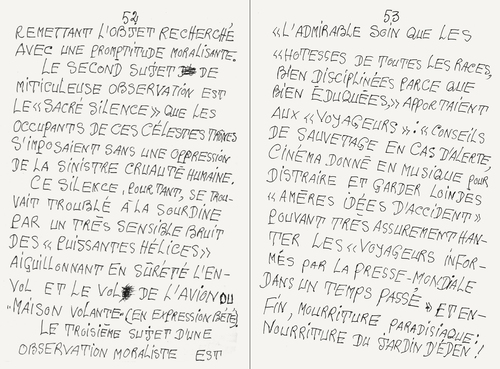 52
REMETTANT L'OBJET RECHERCHÉ
AVEC UNE PROMPTITUDE MORALISANTE.
LE SECOND SUJET DE
MITICULEUSE OBSERVATION EST
LE « SACRÉ SILENCE » QUE LES
OCCUPANTS DE CES CÉLESTES TRÔNES
S'IMPOSAIENT SANS UNE OPPRESSION
DE LA SINISTRE CRUAUTÉ HUMAINE.
CE SILENCE, POURTANT, SE TROU-
VAIT TROUBLÉ À LA SOURDINE
PAR UN TRÈS SENSIBLE BRUIT
DES « PUISSANTES HÉLICES »
AIGUILLONNANT EN SÛRETÉ L'EN-
VOL ET LE VOL DE L'AVION OU
"MAISON VOLANTE" (EN EXPRESSION BÉTÉ).
LE TROISIÈME SUJET D'UNE
OBSERVATION MORALISTE EST
53
« L'ADMIRABLE SOIN QUE LES
« HOTESSES DE TOUTES LES RACES,
BIEN DISCIPLINÉES PARCE QUE
BIEN ÉDUQUÉES, » APPORTAIENT
AUX « VOYAGEURS » : « CONSEILS
DE SAUVETAGE EN CAS D'ALERTE,
CINÉMA DONNÉ EN MUSIQUE POUR
DISTRAIRE ET GARDER LOIN DES
« AMÈRES IDÉES D'ACCIDENT »
POUVANT TRÈS ASSUREMENT HAN-
TER LES « VOYAGEURS INFOR-
MÉS PAR LA PRESSE-MONDIALE
DANS UN TEMPS PASSÉ » ET EN-
FIN, MOURRITURE PARADISIAQUE :
NOURRITURE DU JARDIN D'ÉDEN !